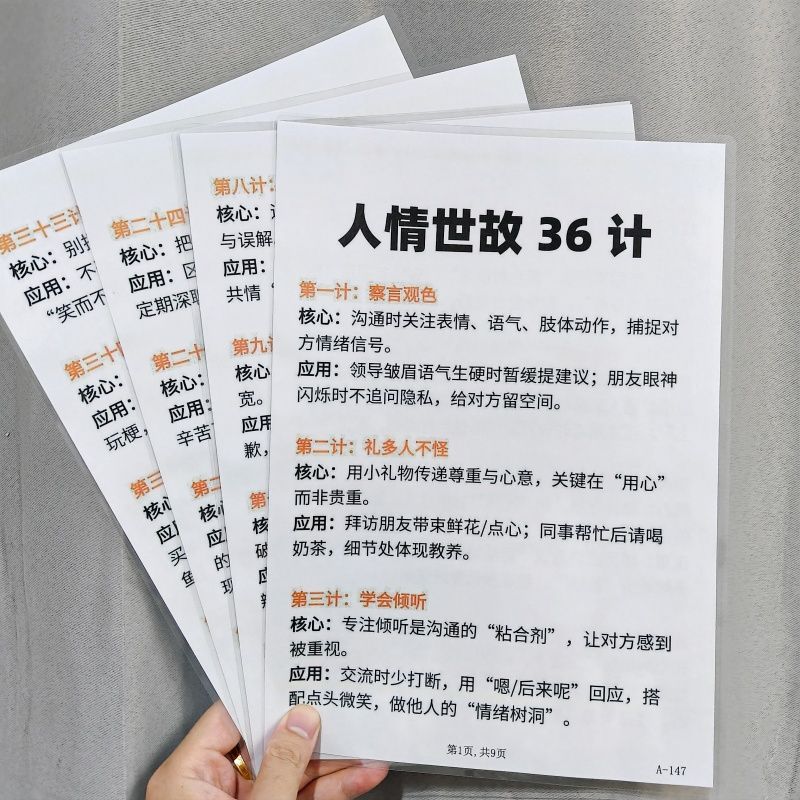 人情世故 36 计
第一计：察言观色
核心：沟通时关注表情、语气、肢体动作，捕捉对
方情绪信号。
应用：领导皱眉语气生硬时暂缓提建议；朋友眼神
闪烁时不追问隐私，给对方留空间。
第二计：礼多人不怪
核心：用小礼物传递尊重与心意，关键在“用心”
而非贵重。
应用：拜访朋友带束鲜花/点心；同事帮忙后请喝
奶茶，细节处体现教养。
第三计：学会倾听
核心：专注倾听是沟通的“粘合剂”，让对方感到
被重视。
应用：交流时少打断，用“嗯/后来呢”回应，搭
配点头微笑，做他人的“情绪树洞”。
第1页,共9页
A-147
第八计：
核心：
与误解
应用：
共情“
第九计
核心：
宽。
应用
歉，
第
核
破
第二十四
核心：把
应用：区
定期深
第二十
核心：
应用：
辛苦
第二
核心
应用
的
现
第三十三计
核心：别
应用：不
“笑而不
第三十
核心：
应用：
玩梗，
第三
核心
应用
买
鱼